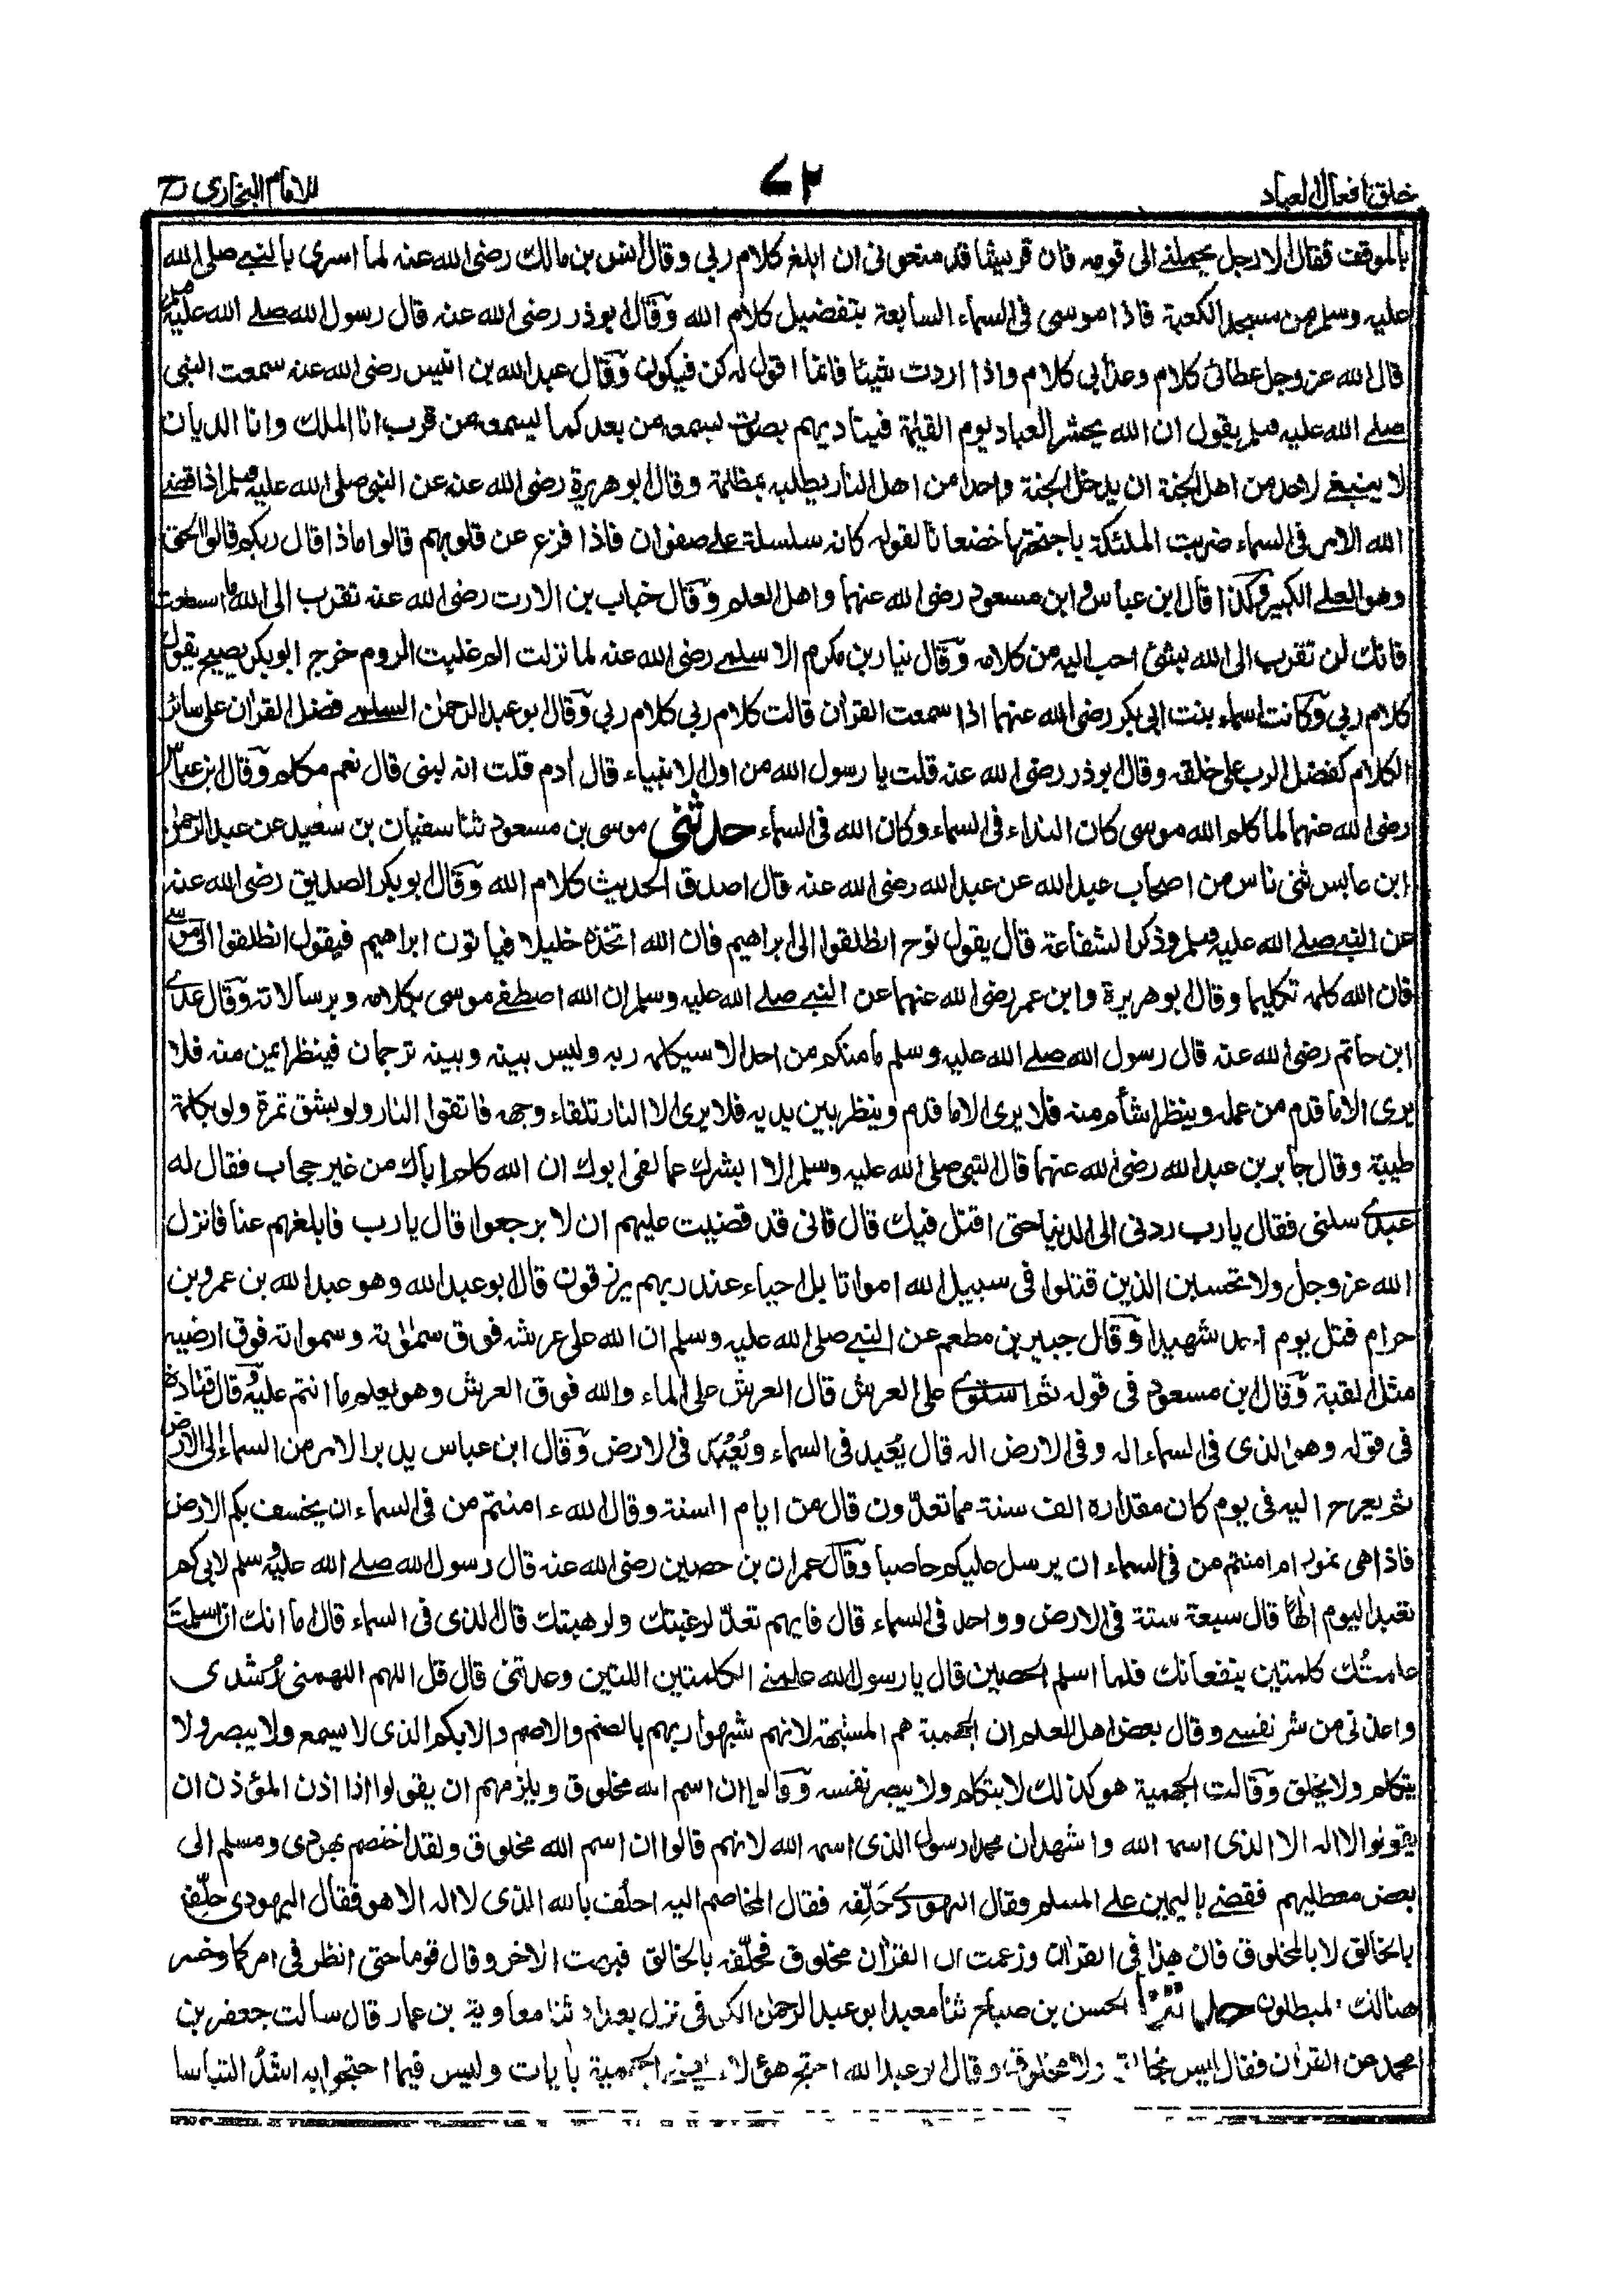 خلق افعال العباد
٧٢
للامام البخاري رح
بالموقف فقال الا رجل يحملني الى قومه فان قريشا قد منعوني ان ابلغ كلام ربي وقال انس بن مالك رضي الله عنه لما اسري بالنبي صلى الله
عليه وسلم من مسجد الكعبة فاذا موسى في السماء السابعة بتفضيل كلام الله وقال ابوذر رضي الله عنه قال رسول الله صلى الله عليه وسلم
قال الله عز وجل عطائي كلام وعذابي كلام واذا اردت شيئا فانما اقول له كن فيكون وقال عبد الله بن انيس رضي الله عنه سمعت النبي
صلى الله عليه وسلم يقول ان الله يحشر العباد يوم القيمة فيناديهم بصوت يسمعه من بعد كما يسمعه من قرب انا الملك وانا الديان
لا ينبغي لاحد من اهل الجنة ان يدخل الجنة واحد من اهل النار يطلبه بمظلمة وقال ابو هريرة رضي الله عنه عن النبي صلى الله عليه وسلم اذا قضى
الله الامر في السماء ضربت الملئكة باجنحتها خضعانا لقوله كانه سلسلة على صفوان فاذا فزع عن قلوبهم قالوا ماذا قال ربكم قالوا الحق
وهو العلي الكبير وكذا قال ابن عباس و ابن مسعود رضي الله عنهما واهل العلم وقال خباب بن الارت رضي الله عنه تقرب الى الله ما استطعت
فانك لن تقرب الى الله بشئ احب اليه من كلامه وقال نيار بن مكرم الاسلمي رضي الله عنه لما نزلت الم غلبت الروم خرج ابوبكر يصيح يقول
كلام ربي وكانت اسماء بنت ابي بكر رضي الله عنهما اذا سمعت القران قالت كلام ربي كلام ربي وقال ابو عبد الرحمن السلمي فضل القران على سائر
الكلام كفضل الرب على خلقه وقال ابوذر رضي الله عنه قلت يا رسول الله من اول الانبياء قال أدم قلت انه لنبي قال نعم مكلم وقال ابن عباس
رضي الله عنهما لما كلم الله موسى كان النداء في السماء وكان الله في السماء حدثني موسى بن مسعود ثنا سفيان بن سعيد عن عبد الرحمن
ابن عابس ثني ناس من اصحاب عبد الله عن عبد الله رضي الله عنه قال اصدق الحديث كلام الله وقال ابو بكر الصديق رضي الله عنه
عن النبي صلى الله عليه وسلم وذكر الشفاعة قال يقول نوح انطلقوا الى ابراهيم فان الله اتخذه خليلا فيأتون ابراهيم فيقول انطلقوا الى موسى
فان الله كلمه تكليما وقال ابو هريرة وابن عمر رضي الله عنهما عن النبي صلى الله عليه وسلم ان الله اصطفى موسى بكلامه وبرسالاته وقال عدي
ابن حاتم رضي الله عنه قال رسول الله صلى الله عليه وسلم ما منكم من احد الا سيكلمه ربه وليس بينه وبينه ترجمان فينظر ايمن منه فلا
يرى الا ما قدم من عمله وينظر اشأم منه فلا يرى الا ما قدم وينظر بين يديه فلا يرى الا النار تلقاء وجهه فاتقوا النار ولو بشق تمرة ولو بكلمة
طيبة وقال جابر بن عبد الله رضي الله عنهما قال النبي صلى الله عليه وسلم الا ابشرك عما لقي ابوك ان الله كلم اباك من غير حجاب فقال له
عبدي سلني فقال يا رب ردني الى الدنيا حتى اقتل فيك قال فاني قد قضيت عليهم ان لا يرجعوا قال يا رب فابلغهم عنا فانزل
الله عز وجل ولا تحسبن الذين قتلوا في سبيل الله امواتا بل احياء عند ربهم يرزقون قال ابو عبد الله وهو عبد الله بن عمرو بن
حرام قتل يوم احد شهيدا وقال جبير بن مطعم عن النبي صلى الله عليه وسلم ان الله على عرشه فوق سمٰوٰته وسمواته فوق ارضيه
مثل القبة وقال ابن مسعود في قوله ثم استوى على العرش قال العرش على الماء والله فوق العرش وهو يعلم ما انتم عليه وقال قتادة
في قوله وهو الذي في السماء اله وفي الارض اله قال يُعبد في السماء ويُعبد في الارض وقال ابن عباس يدبر الامر من السماء الى الارض
ثم يعرج اليه في يوم كان مقداره الف سنة مما تعدّون قال من ايام الستة وقال الله ء امنتم من في السماء ان يخسف بكم الارض
فاذا هي تمور ام امنتم من في السماء ان يرسل عليكم حاصبا وقال عمران بن حصين رضي الله عنه قال رسول الله صلى الله عليه وسلم لابي كم
تعبد اليوم الٰها قال سبعة ستة في الارض وواحد في السماء قال فايهم تعدّ لرغبتك ولرهبتك قال الذي في السماء قال اما انك ان اسلمت
علمتُك كلمتين ينفعانك فلما اسلم الحصين قال يا رسول الله علمني الكلمتين اللتين وعدتني قال قل اللهم الهمني رُشدي
واعذني من شر نفسي وقال بعض اهل العلم ان الجهمية هم المشبهة لانهم شبهوا ربهم بالصنم والاصم والابكم الذي لا يسمع ولا يبصر ولا
يتكلم ولا يخلق وقالت الجهمية هو كذلك لا يتكلم ولا يبصر نفسه وقالوا ان اسم الله مخلوق ويلزمهم ان يقولوا اذا اذن المؤذن ان
يقولوا لا اله الا الذي اسمه الله واشهد ان محمدا رسول الذي اسمه الله لانهم قالوا ان اسم الله مخلوق ولقد اختصم يهودي ومسلم الى
بعض معطليهم فقضى باليمين على المسلم وقال اليهودي حَلِّفه فقال المخاصم اليه احلف بالله الذي لا اله الا هو فقال اليهودي حلّفه
بالخالق لا بالمخلوق فان هذا في القران وزعمت ان القران مخلوق فحلّفه بالخالق فبهت الاخر وقال قوما حتى انظر في امركما وخسر
هنالك المبطلون حدثنا الحسن بن صباح ثنا معبد ابو عبد الرحمن الكوفي نزل بغداد ثنا معاوية بن عمار قال سالت جعفر بن
محمد عن القران فقال ليس بخالق ولا مخلوق وقال ابو عبد الله احتج هؤلاء يعني الجهمية بأيات وليس فيما احتجوا به اشدُّ التباسا